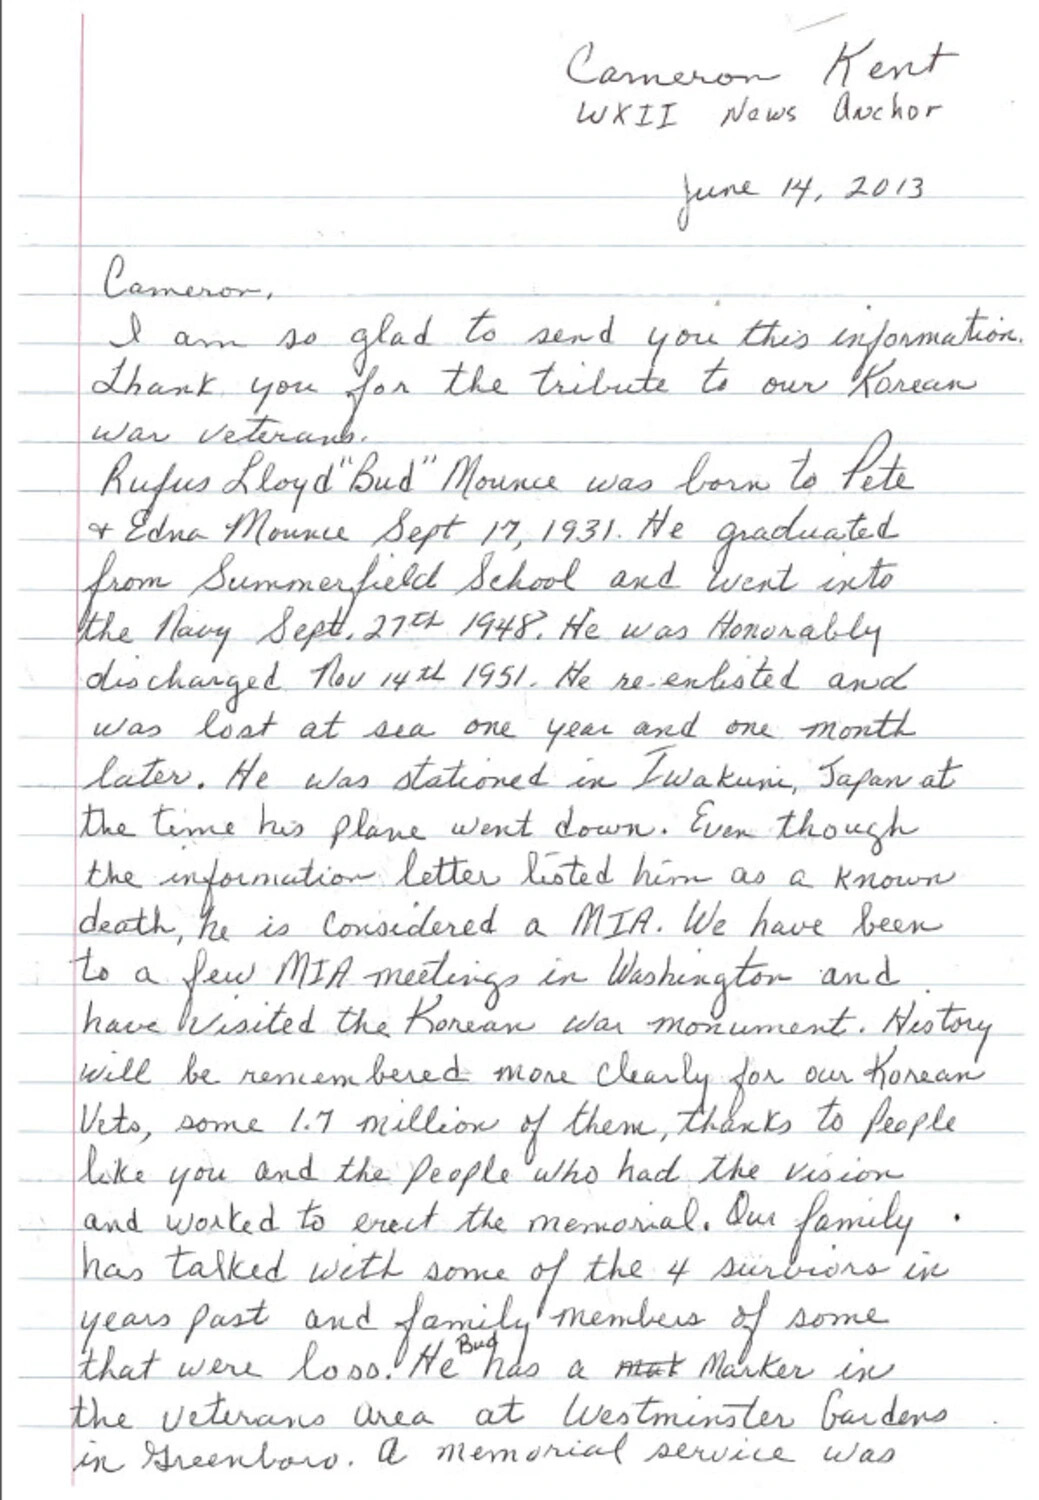 Cameron Kent
WXII News Anchor
June 14, 2013
Cameron,
I am so glad to send you this information.
Thank you for the tribute to our Korean
war veterans.
Rufus Lloyd "Bud" Mounce was born to Pete
& Edna Mounce Sept 17, 1931. He graduated
from Summerfield School and went into
the Navy Sept. 27th 1948. He was Honorably
discharged Nov 14th 1951. He re-enlisted and
was lost at sea one year and one month
later. He was stationed in Iwakuni, Japan at
the time his plane went down. Even though
the information letter listed him as a known
death, he is considered a MIA. We have been
to a few MIA meetings in Washington and
have visited the Korean war monument. History
will be remembered more clearly for our Korean
Vets, some 1.7 million of them, thanks to people
like you and the people who had the vision
and worked to erect the memorial. Our family
has talked with some of the 4 surviors in
years past and family members of some
that were loss. He Bud has a mak Marker in
the veterans area at Westminster Gardens
in Greenboro. A memorial service was